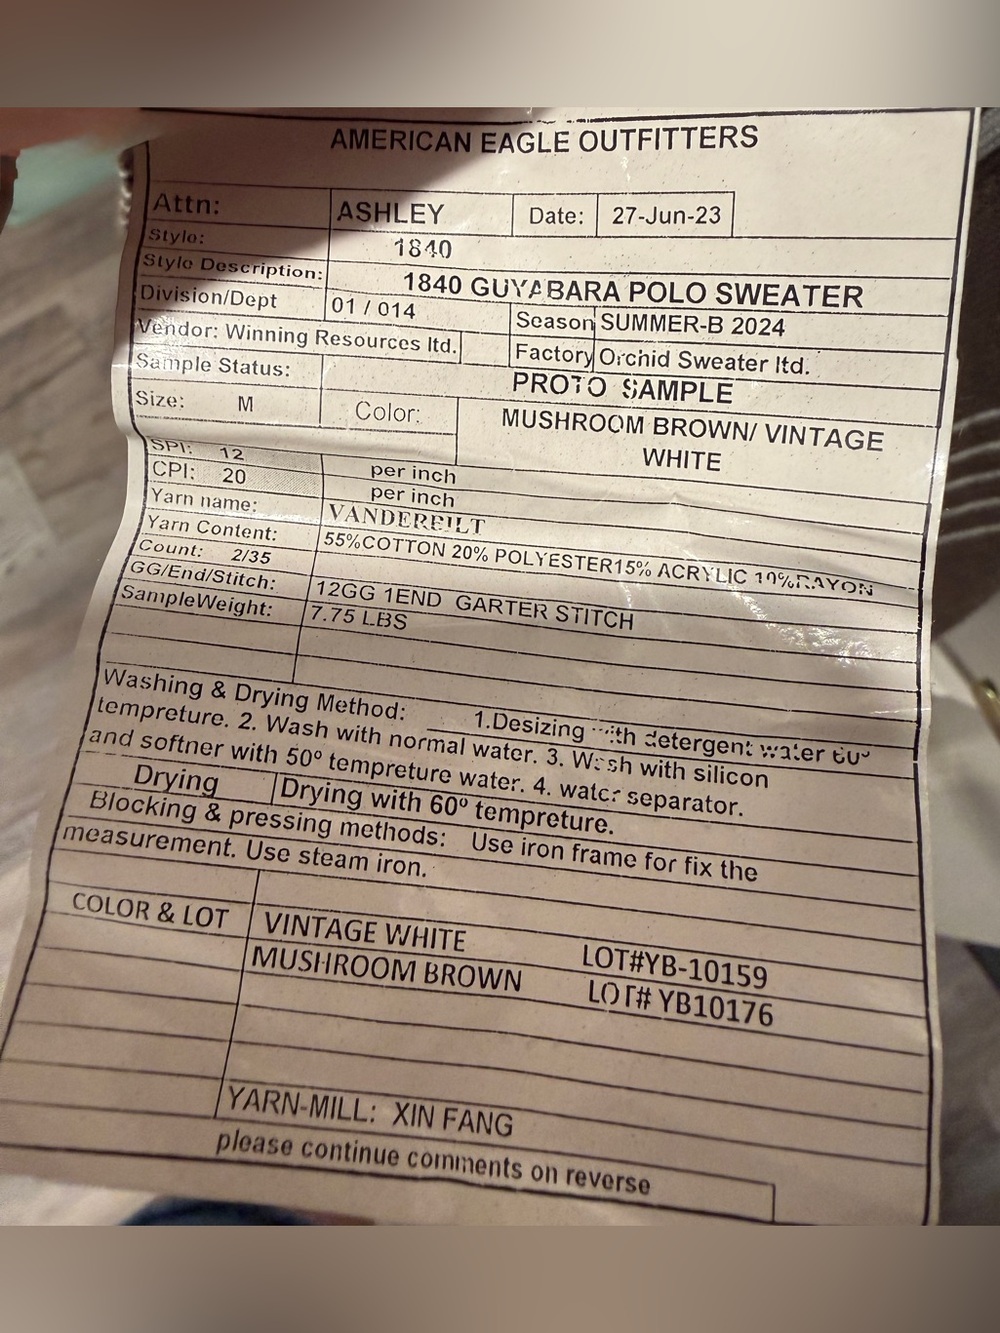 AMERICAN EAGLE OUTFITTERS
Attn: ASHLEY Date: 27-Jun-23
Style: 1840
Style Description: 1840 GUYABARA POLO SWEATER
Division/Dept 01 / 014 Season SUMMER-B 2024
Vendor: Winning Resources ltd. Factory Orchid Sweater ltd.
Sample Status: PROTO SAMPLE
Size: M Color: MUSHROOM BROWN/ VINTAGE
WHITE
SPI: 12 per inch
CPI: 20 per inch
Yarn name: VANDERBILT
Yarn Content: 55%COTTON 20% POLYESTER15% ACRYLIC 10%RAYON
Count: 2/35
GG/End/Stitch: 12GG 1END GARTER STITCH
SampleWeight: 7.75 LBS
Washing & Drying Method: 1.Desizing with detergent water 60º
tempreture. 2. Wash with normal water. 3. Wash with silicon
and softner with 50º tempreture water. 4. water separator.
Drying Drying with 60º tempreture.
Blocking & pressing methods: Use iron frame for fix the
measurement. Use steam iron.
COLOR & LOT VINTAGE WHITE LOT#YB-10159
MUSHROOM BROWN LOT# YB10176
YARN-MILL: XIN FANG
please continue comments on reverse